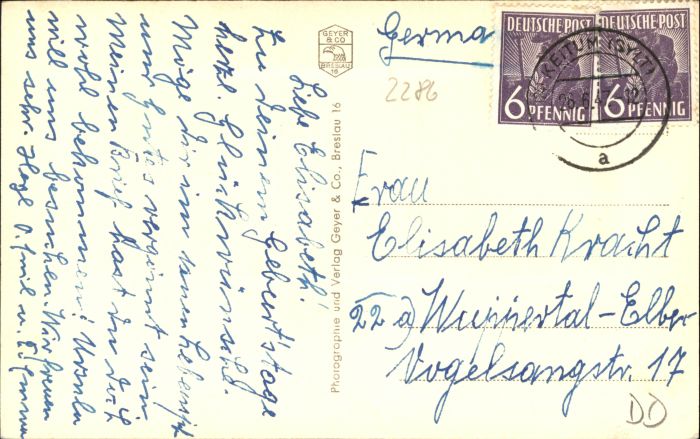 Liebe Elisabeth!
Zu deinem Geburtstage
herzl. Glückwünsche.
Möge dir im neuen Lebensj
nur Gutes vergönnt sein
Meinen Brief hast du doch
wohl bekommen? Ursula
will uns besuchen. Wir freuen
uns sehr. Herzl. u.
GEYER
& CO
BRESLAU
16
Photographie und Verlag Geyer & Co., Breslau 16
Germa
2286
DEUTSCHE POST
6 PFENNIG
DEUTSCHE POST
6 PFENNIG
KEITUM (SYLT)
a
Frau
Elisabeth Kracht
22 a) Wuppertal-Elber
Vogelsangstr. 17
DD